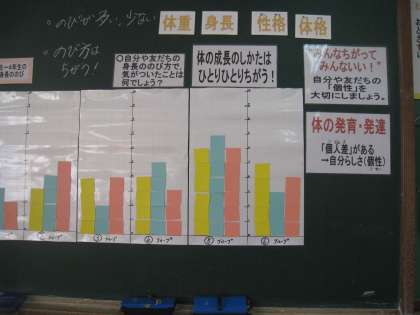 ○のびが多い、少ない
○のび方は
ちがう!
体重
身長
性格
体格
身長ののび
○自分や友だちの
身長ののび方で、
気がついたことは
何でしょう?
体の成長のしかたは
ひとりひとりちがう!
みんなちがって
みんないい!
自分や友だちの
「個性」を
大切にしましょう。
体の発育・発達
「個人差」がある
→自分らしさ(個性)
グループ
グループ
グループ
グループ
グループ